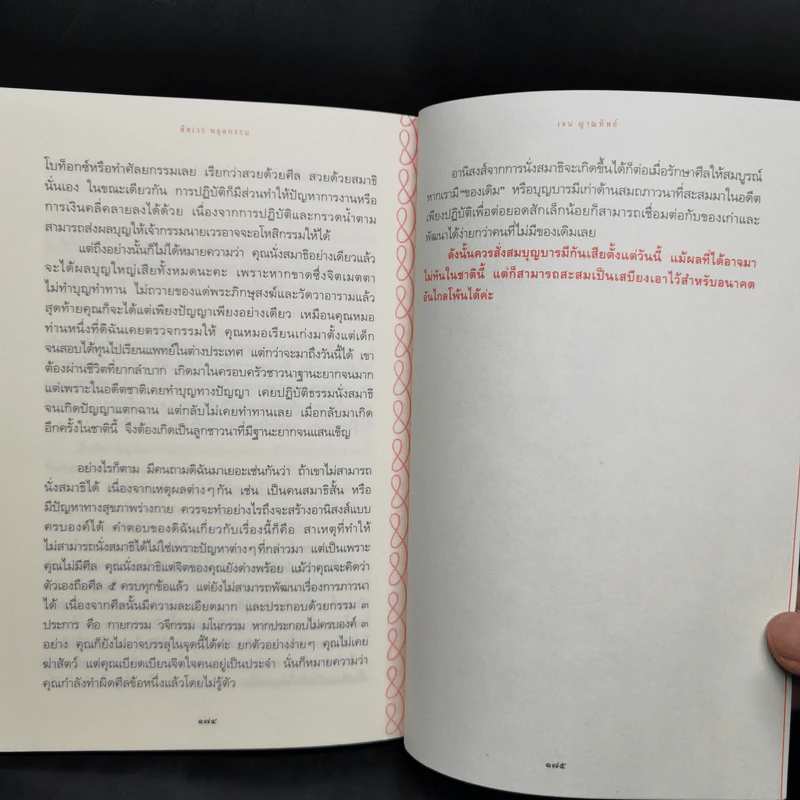 ตัดเวร หยุดกรรม
โบท็อกซ์หรือทำศัลยกรรมเลย เรียกว่าสวยด้วยศีล สวยด้วยสมาธิ
นั่นเอง ในขณะเดียวกัน การปฏิบัติก็มีส่วนทำให้ปัญหาการงานหรือ
การเงินคลี่คลายลงได้ด้วย เนื่องจากการปฏิบัติและกรวดน้ำตาม
สามารถส่งผลบุญให้เจ้ากรรมนายเวรอาจจะอโหสิกรรมให้ได้
แต่ถึงอย่างนั้นก็ไม่ได้หมายความว่า คุณนั่งสมาธิอย่างเดียวแล้ว
จะได้ผลบุญใหญ่เสียทั้งหมดนะคะ เพราะหากขาดซึ่งจิตเมตตา
ไม่ทำบุญทำทาน ไม่ถวายของแด่พระภิกษุสงฆ์และวัดวาอารามแล้ว
สุดท้ายคุณก็จะได้แต่เพียงปัญญาเพียงอย่างเดียว เหมือนคุณหมอ
ท่านหนึ่งที่ดิฉันเคยตรวจกรรมให้ คุณหมอเรียนเก่งมาตั้งแต่เด็ก
จนสอบได้ทุนไปเรียนแพทย์ในต่างประเทศ แต่กว่าจะมาถึงวันนี้ได้ เขา
ต้องผ่านชีวิตที่ยากลำบาก เกิดมาในครอบครัวชาวนาฐานะยากจนมาก
แต่เพราะในอดีตชาติเคยทำบุญทางปัญญา เคยปฏิบัติธรรมนั่งสมาธิ
จนเกิดปัญญาแตกฉาน แต่กลับไม่เคยทำทานเลย เมื่อกลับมาเกิด
อีกครั้งในชาตินี้ จึงต้องเกิดเป็นลูกชาวนาที่มีฐานะยากจนแสนเข็ญ
อย่างไรก็ตาม มีคนถามดิฉันมาเยอะเช่นกันว่า ถ้าเขาไม่สามารถ
นั่งสมาธิได้ เนื่องจากเหตุผลต่างๆกัน เช่น เป็นคนสมาธิสั้น หรือ
มีปัญหาทางสุขภาพร่างกาย ควรจะทำอย่างไรถึงจะสร้างอานิสงส์แบบ
ครบองค์ได้ คำตอบของดิฉันเกี่ยวกับเรื่องนี้ก็คือ สาเหตุที่ทำให้
ไม่สามารถนั่งสมาธิได้ไม่ใช่เพราะปัญหาต่างๆที่กล่าวมา แต่เป็นเพราะ
คุณไม่มีศีล คุณนั่งสมาธิแต่จิตของคุณยังด่างพร้อย แม้ว่าคุณจะคิดว่า
ตัวเองถือศีล ๕ ครบทุกข้อแล้ว แต่ยังไม่สามารถพัฒนาเรื่องการภาวนา
ได้ เนื่องจากศีลนั้นมีความละเอียดมาก และประกอบด้วยกรรม ๓
ประการ คือ กายกรรม วจีกรรม มโนกรรม หากประกอบไม่ครบองค์ ๓
อย่าง คุณก็ยังไม่อาจบรรลุในจุดนี้ได้ค่ะ ยกตัวอย่างง่ายๆ คุณไม่เคย
ฆ่าสัตว์ แต่คุณเบียดเบียนจิตใจคนอยู่เป็นประจำ นั่นก็หมายความว่า
คุณกำลังทำผิดศีลข้อหนึ่งแล้วโดยไม่รู้ตัว
๑๗๔
เจน ญาณทิพย์
อานิสงส์จากการนั่งสมาธิจะเกิดขึ้นได้ก็ต่อเมื่อรักษาศีลให้สมบูรณ์
หากเรามี “ของเดิม” หรือบุญบารมีเก่าด้านสมถภาวนาที่สะสมมาในอดีต
เพียงปฏิบัติเพื่อต่อยอดสักเล็กน้อยก็สามารถเชื่อมต่อกับของเก่าและ
พัฒนาได้ง่ายกว่าคนที่ไม่มีของเดิมเลย
ดังนั้นควรสั่งสมบุญบารมีกันเสียตั้งแต่วันนี้ แม้ผลที่ได้อาจมา
ไม่ทันในชาตินี้ แต่ก็สามารถสะสมเป็นเสบียงเอาไว้สำหรับอนาคต
อันไกลโพ้นได้ค่ะ
๑๗๕